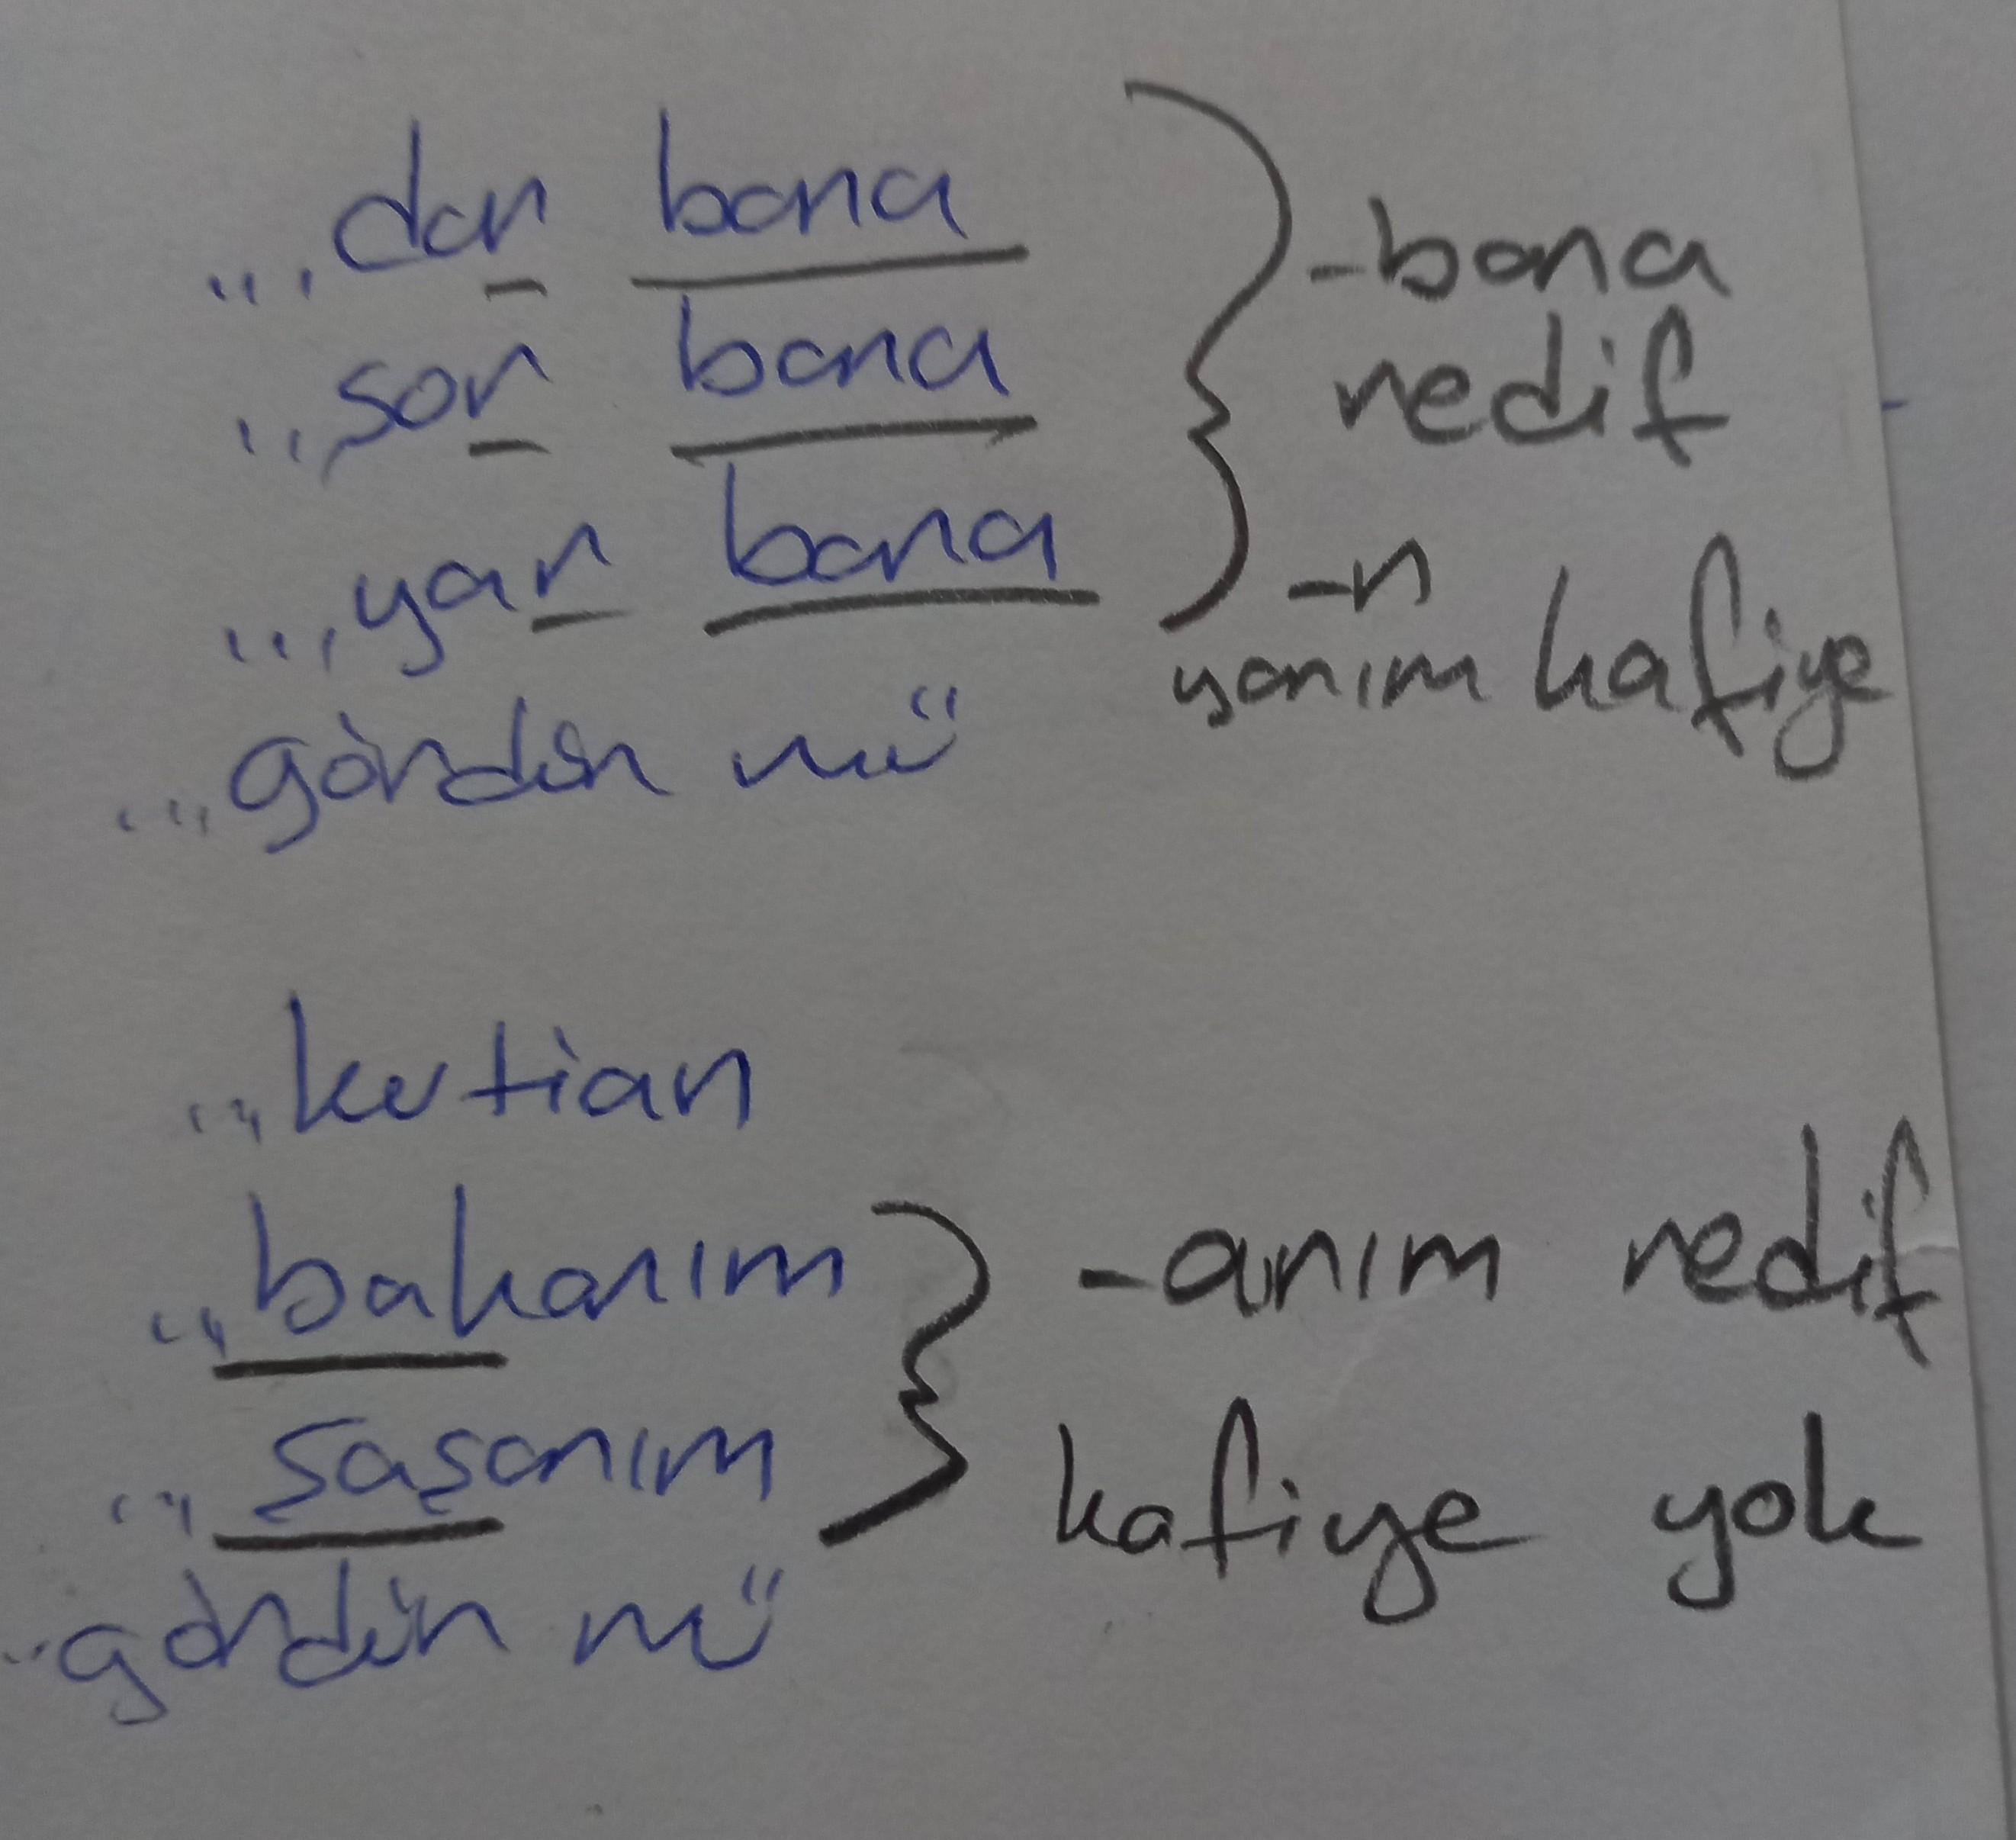 ...dar bana
...sor bana
...yar bana
...gördün mü
-bana
redif
-r
yarım kafiye
...bakarım
...şaşarım
..gördün mü
-arım redif
kafiye yok